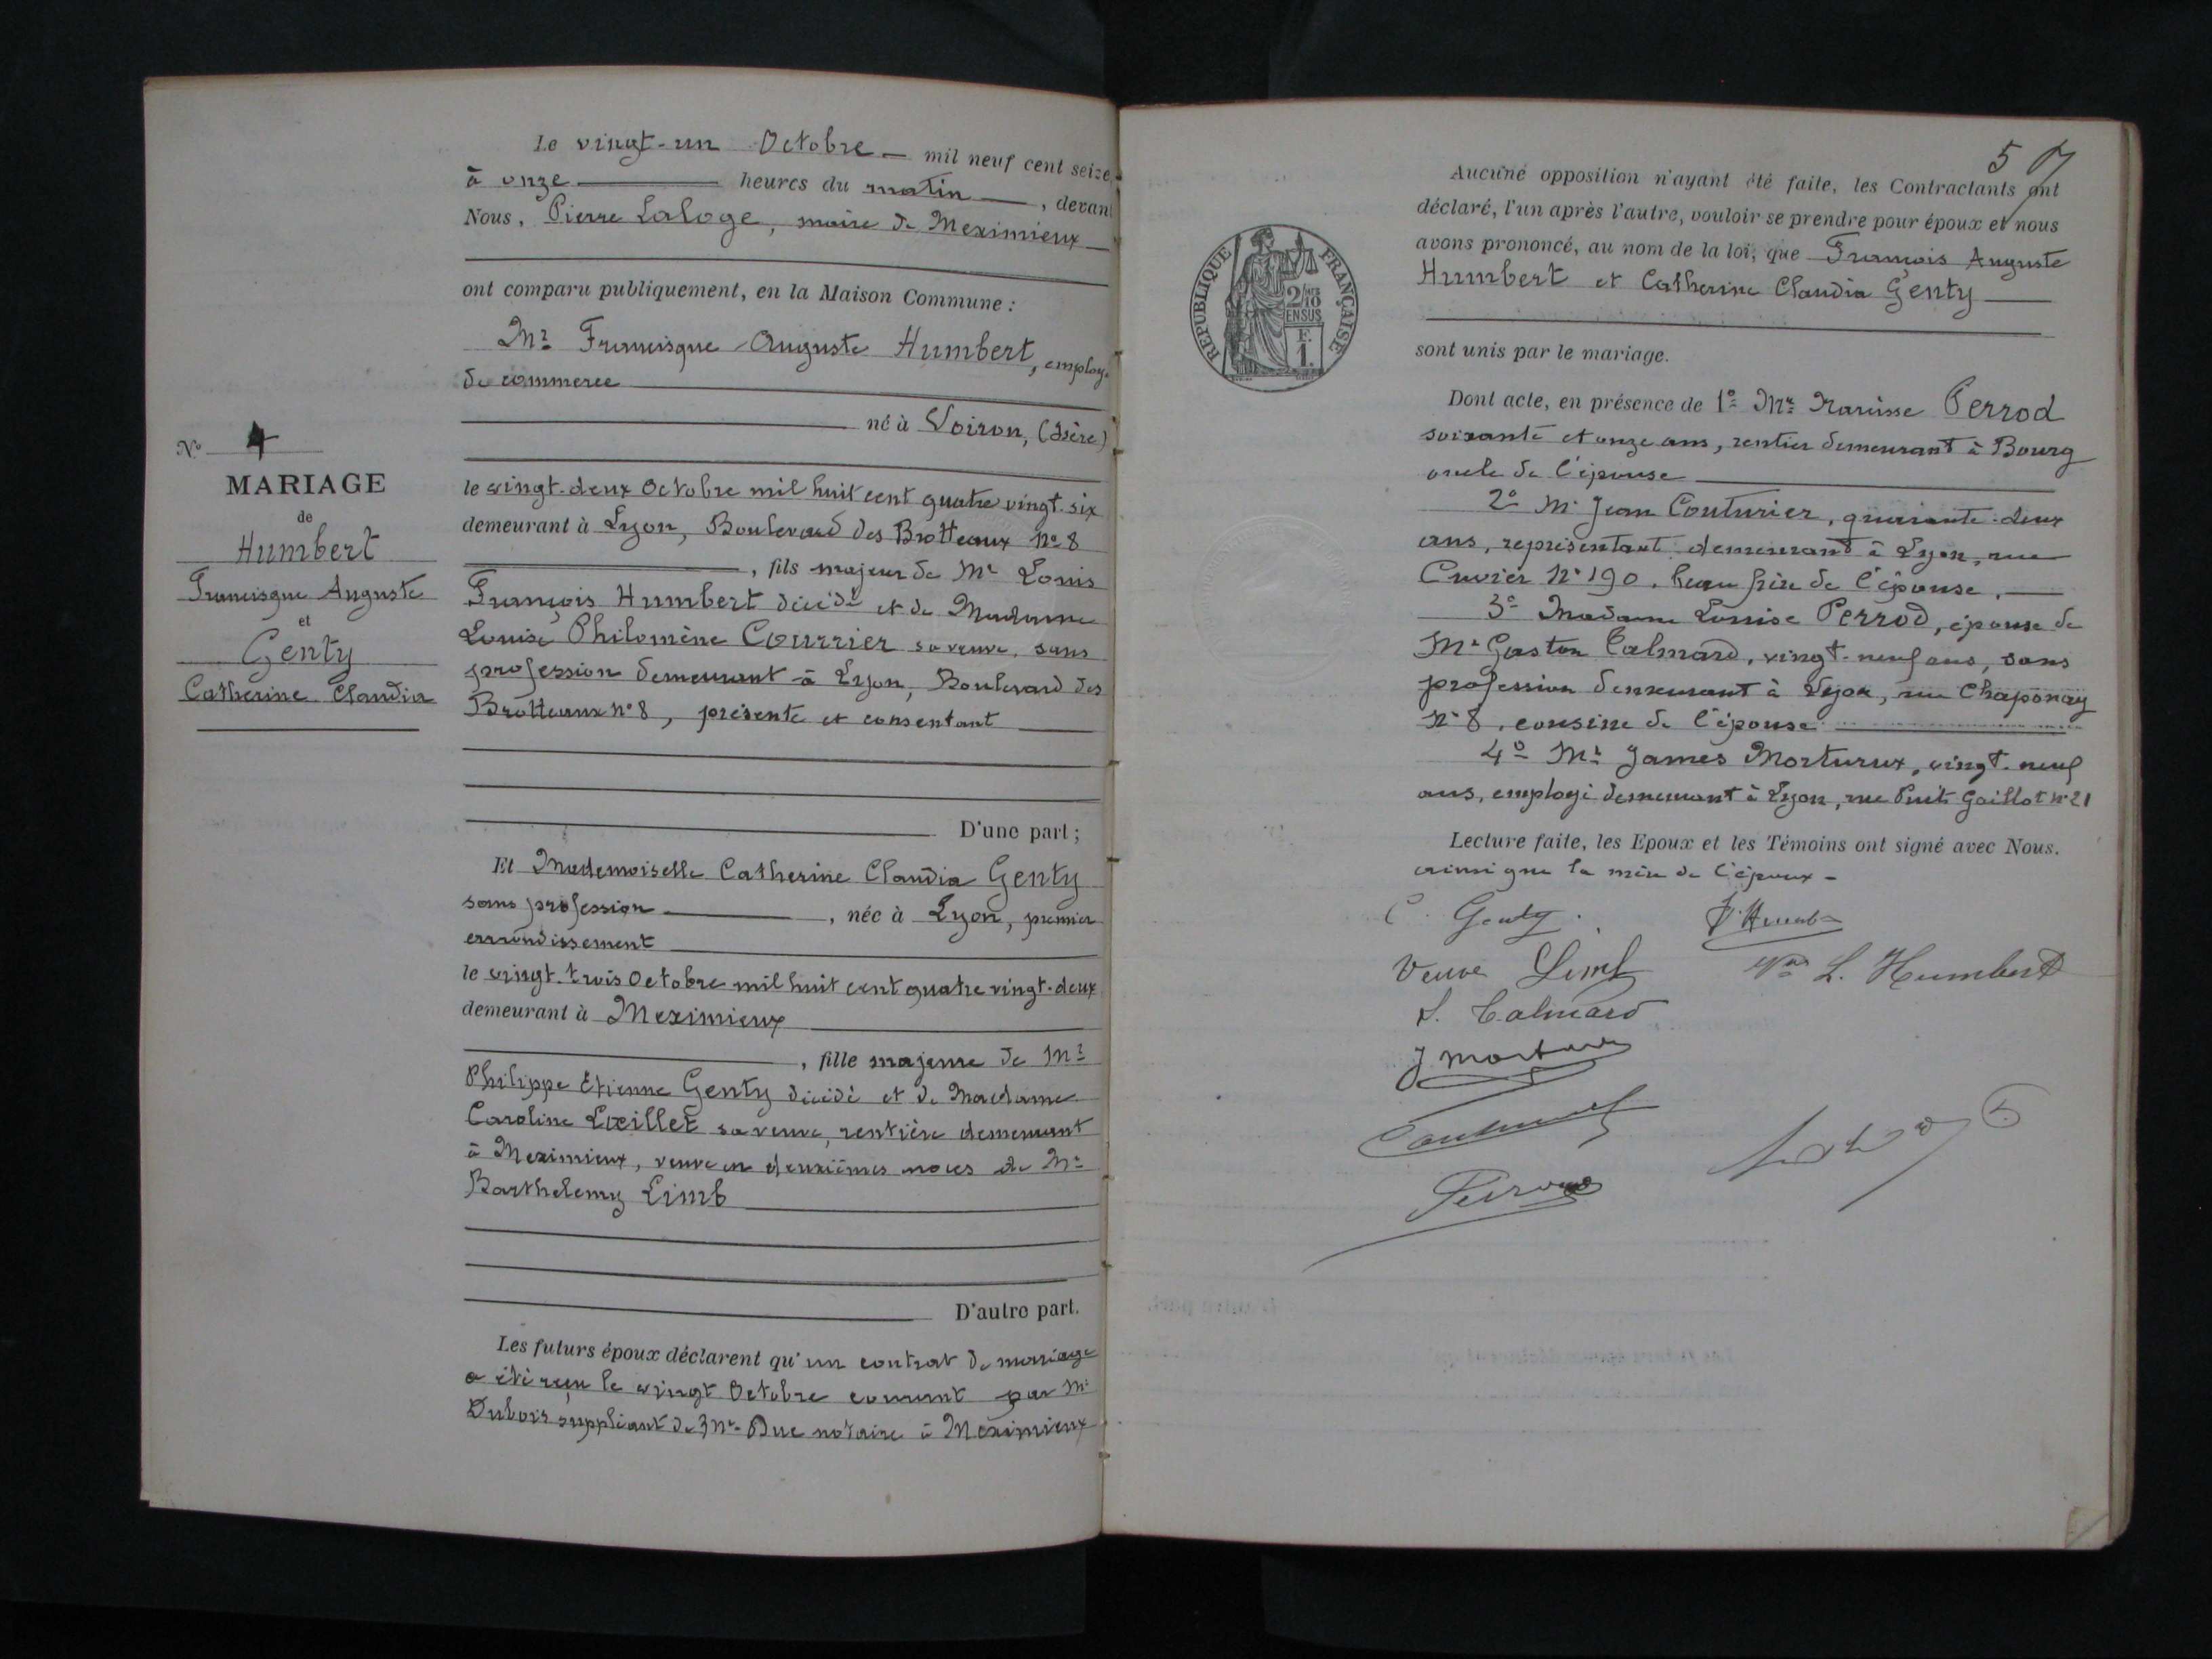 Le vingt-un Octobre — mil neuf cent seize,
à onze heures du matin —, devant
Nous, Pierre Laloge, maire de Meximieux
ont comparu publiquement, en la Maison Commune :
Mr Francisque Auguste Humbert, employé
de commerce
né à Voiron, (Isère)
le vingt-deux Octobre mil huit cent quatre vingt-six
demeurant à Lyon, Boulevard des Brotteaux no 8
, fils majeur de Mr Louis
François Humbert décédé et de Madame
Louise Philomène Courrier sa veuve, sans
profession demeurant à Lyon, Boulevard des
Brotteaux no 8, présente et consentant
D'une part ;
Et Mademoiselle Catherine Claudia Genty
sans profession, née à Lyon, premier
arrondissement
le vingt-trois Octobre mil huit cent quatre vingt-deux
demeurant à Meximieux
, fille majeure de Mr
Philippe Etienne Genty décédé et de Madame
Caroline Lœillet sa veuve, rentière demeurant
à Meximieux, veuve en deuxièmes noces de Mr
Barthelemy Limb
D'autre part.
Les futurs époux déclarent qu'un contrat de mariage
a été reçu le vingt Octobre courant par Mr
Dubois suppléant de Mr Duc notaire à Meximieux
No 4
MARIAGE
de
Humbert
Francisque Auguste
et
Genty
Catherine Claudia
5
RÉPUBLIQUE FRANÇAISE
2/10
EN SUS
F.
1.
Aucune opposition n'ayant été faite, les Contractants ont
déclaré, l'un après l'autre, vouloir se prendre pour époux et nous
avons prononcé, au nom de la loi, que François Auguste
Humbert et Catherine Claudia Genty
sont unis par le mariage.
Dont acte, en présence de 1o Mr Narcisse Perrod
soixante et onze ans, rentier demeurant à Bourg
oncle de l'épouse
2o Mr Jean Couturier, quarante-deux
ans, représentant demeurant à Lyon, rue
Cuvier No 190, beau frère de l'épouse.
3o Madame Louise Perrod, épouse de
Mr Gaston Talmard, vingt-neuf ans, sans
profession demeurant à Lyon, rue Chaponay
No 8, cousine de l'épouse
4o Mr James Mortureux, vingt-neuf
ans, employé demeurant à Lyon, rue Puits Gaillot No 21
Lecture faite, les Epoux et les Témoins ont signé avec Nous.
ainsi que la mère de l'époux -
C. Genty.
Veuve Limb
Vve L. Humbert
L. Talmard
Perrod